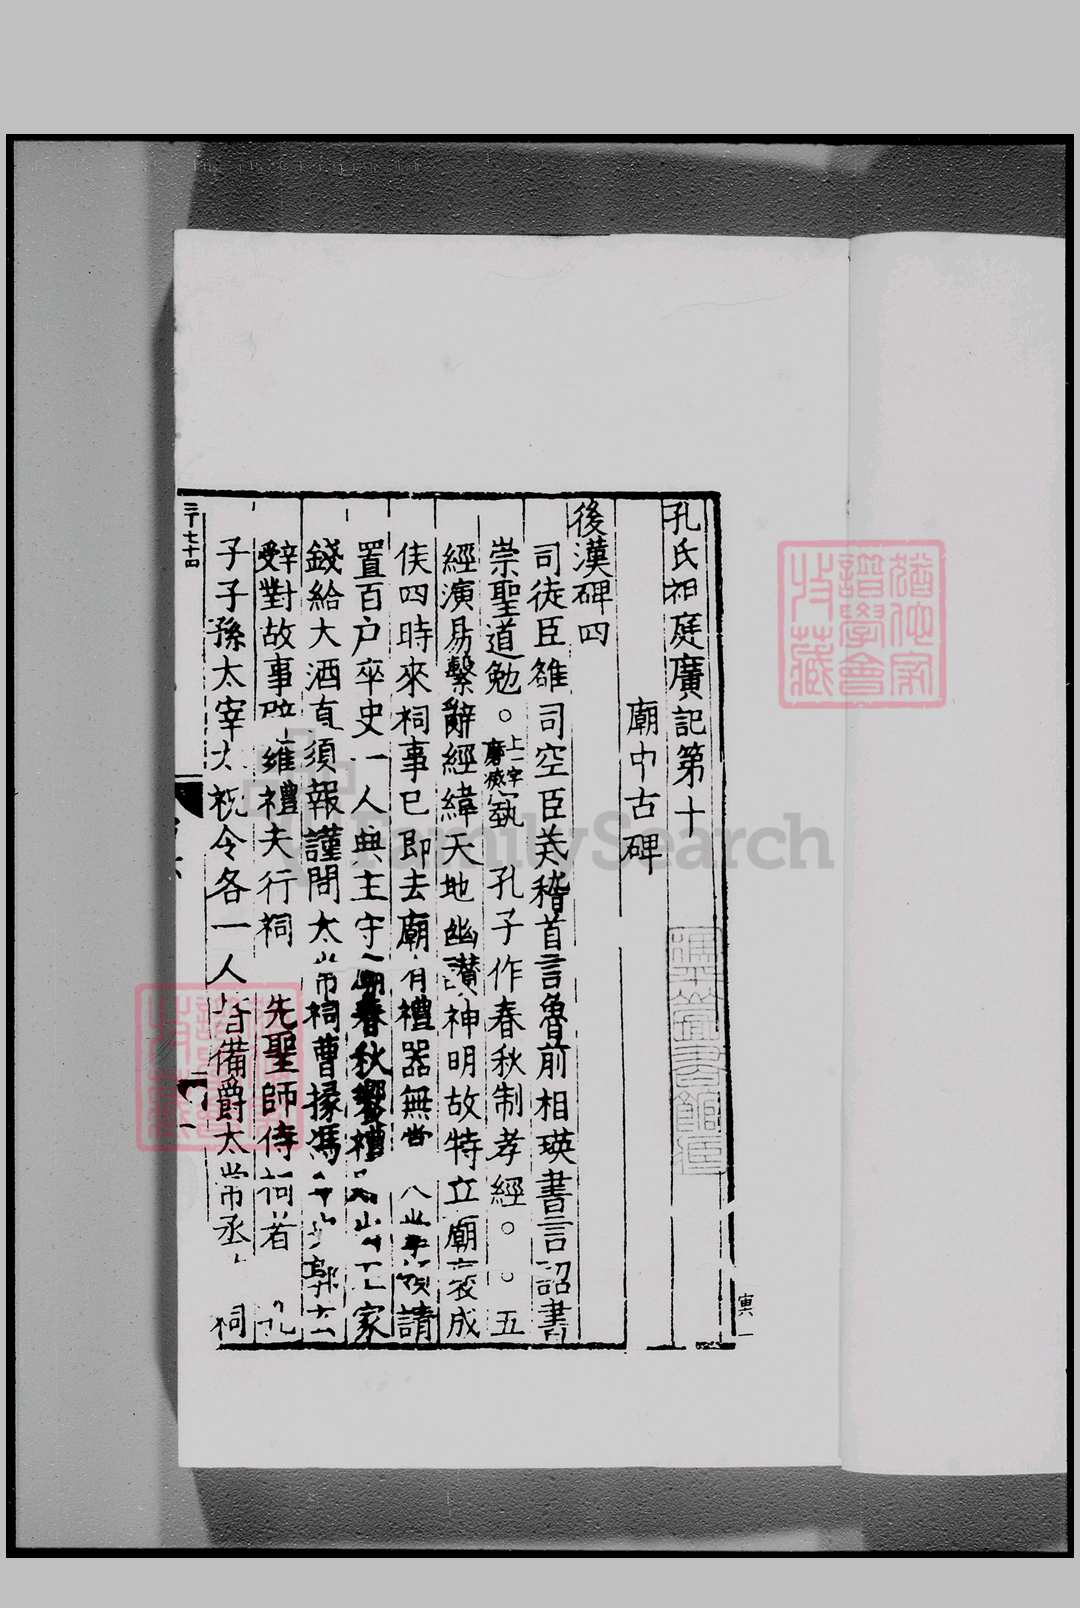 孔氏祖庭廣記第十
廟中古碑
後漢碑四
司徒臣雄司空臣戒稽首言魯前相瑛書言詔書
崇聖道勉。上一字磨滅藝 孔子作春秋制孝經。。五
經演易繫辭經緯天地幽讚神明故特立廟襃成
侯四時來祠事已即去廟有禮器無常
請
置百户卒史一人典主守廟春秋饗禮
家
錢給大酒直須報謹問太常祠曹掾馮
郭玄
辭對故事辟雍禮未行祠 先聖師侍祠者 孔
子子孫太宰太祝令各一人皆備爵太常丞 祠
三千七十四
寅一
FamilySearch